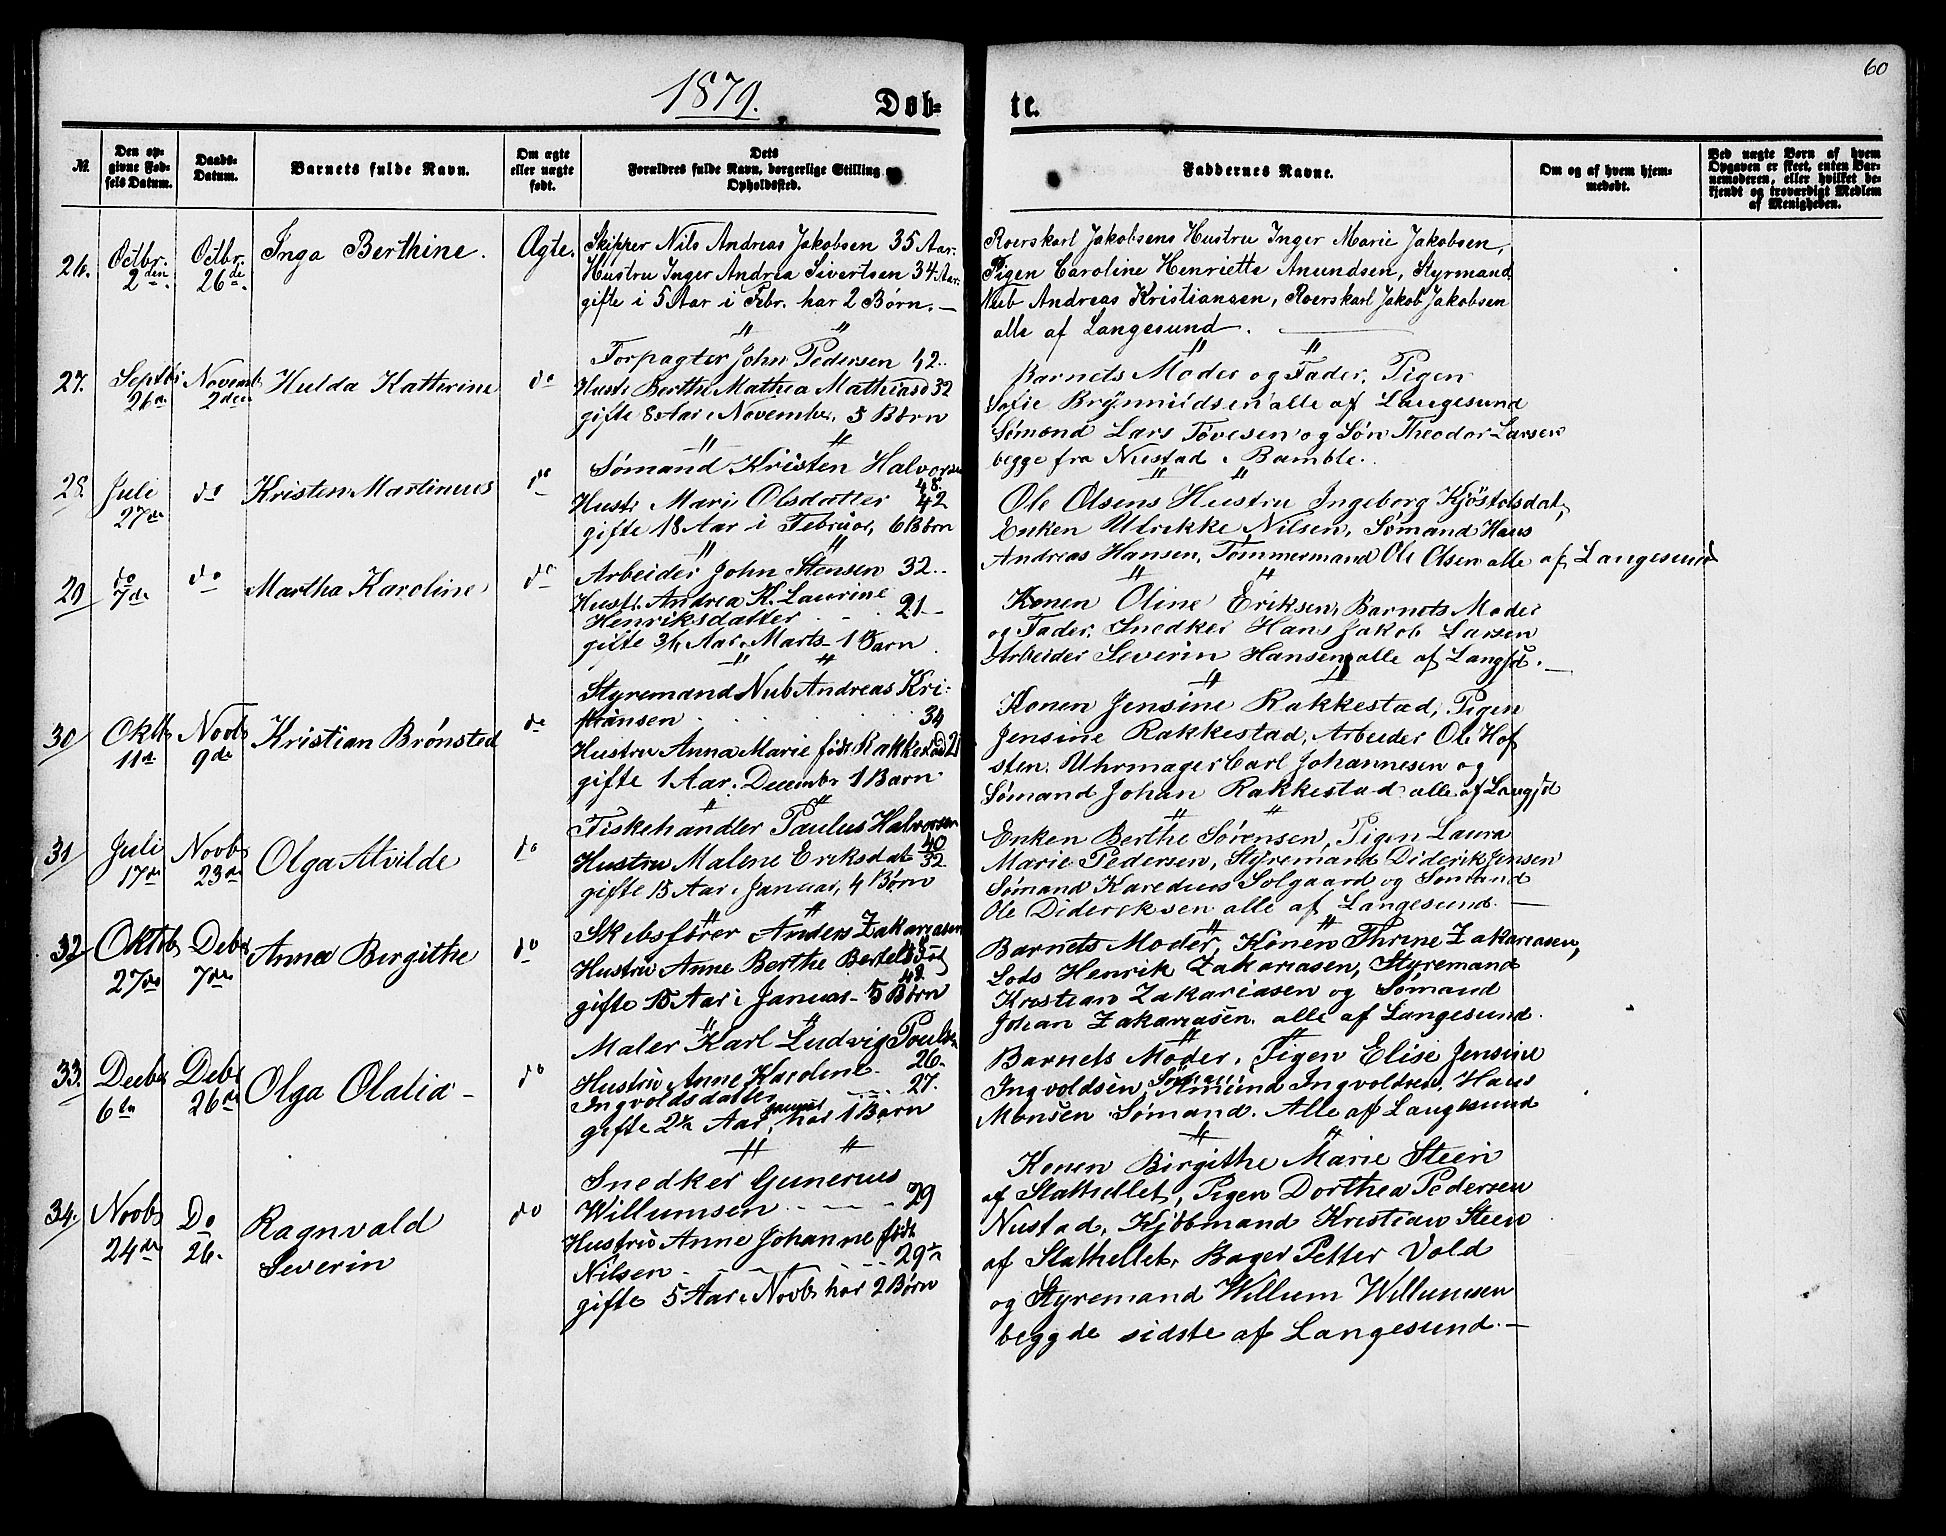 60
1879.
Døb-
te.
№
Den op-
givne Fød-
sels Datum.
Daabs-
Datum.
Barnets fulde Navn.
Om ægte
eller uægte
født.
Dets
Forældres fulde Navn, borgerlige Stilling
Opholdssted.
Faddernes Navne.
Om og af hvem hjem-
medøbt.
Ved uægte Børn af hvem
Opgaven er skeet, enten Bar-
nemoderen, eller hvilket be-
kjendt og troværdigt Medlem
af Menigheden.
26.
Octbr.
2den
Octbr.
26de.
Inga Berthine.
Ægte.
Skipper Nils Andreas Jakobsen 35 Aar.
Hustru Inger Andrea Sivertsen 34 Aar.
gifte i 5 Aar i Febr. har 2 Børn. —
Roerskarl Jakobsens Hustru Inger Marie Jakobsen,
Pigen Caroline Henriette Anundsen, Styrmand
Nub Andreas Kristiansen, Roerskarl Jakob Jakobsen
alle af Langesund.
27.
Septbr
26de
Novemb
2den
Hulda Katterine
do
Forpagter John Pedersen 42..
Hust. Berthe Mathea Mathiasd 32
gifte 8 Aar i November, 5 Børn
Barnets Moder og Fader, Pigen
Sofie Brynnildsen alle af Langesund
Sømand Lars Tovesen og Søn Theodor Larsen
begge fra Nustad i Bamble.
28.
Juli
27de
do
Kristen Martinius
do
Sømand Kristen Halvorsen
48.
Hust. Mari Olsdatter 42
gifte 18 Aar i Februar, 6 Børn
Ole Olsens Hustru Ingeborg Kjöstolsdat,
Enken Ulrikke Nilsen, Sømand Hans
Andreas Hansen, Tømmermand Ole Olsen alle af Langesund
29
do
7de
do
Martha Karoline
do
Arbeider John Stensen 32..
Hust. Andrea K. Laurine
Henriksdatter 21 —
gifte 3/4 Aar i Marts - 1 Barn.
Konen Oline Eriksen, Barnets Moder
og Fader, Snedker Hans Jakob Larsen
Arbeider Severin Hansen, alle af Langsd. —
30
Oktb
11te
Novb
9de
Kristian Brønsted
do
Styremand Nub Andreas Kri-
stiansen 34
Hustru Anna Marie født Rakkestad 2
gifte 1 Aar i Decembr 1 Barn
Konen Jensine Rakkestad, Pigen
Jensine Rakkestad, Arbeider Ole Hof
sten. Uhrmager Carl Johannesen og
Sømand Johan Rakkestad alle af Langsd
31
Juli
17de
Novb
23de
Olga Alvilde
do
Fiskehandler Paulus Halvorsen
40
Hustru Malene Eriksdat 32
gifte 15 Aar i Januar, 4 Børn
Enken Berthe Sørensen, Pigen Laura
Marie Pedersen, Styremand Diderik Jensen
Sømand Karedius Solgaard og Sømand
Ole Dideriksen alle af Langesund. —
32
Oktob
27de
Debr
7de
Anna Birgithe
do
Skibsfører Anders Zakariasen
Hustru Anne Berthe Bertels
48.
gifte 15 Aar i Januar - 5 Børn
Barnets Moder, Konen Thrine Zakariasen,
Lods Henrik Zakariasen, Styremand
Kristian Zakariasen og Sømand
Johan Zakariasen. alle af Langesund.
33.
Decbr
6te
Debr
26de
Olga Olalia -
do
Maler Karl Ludvig Pouls
26.
Hustru Anne Karoline
Ingvoldsdatter 27.
gifte 2½ Aar, Januar har 1 Barn
Barnets Moder, Pigen Elise Jensine
Ingvoldsen, Sømand Amund Ingvoldsen, Hans
Monsen Sømand. Alle af Langesund
34.
Novb
24de
Do
26.
Ragnvald
Severin
do
Snedker Gunerius
Willumsen 29
Hustru Anne Johanne født
Nilsen 29½
gifte 5 Aar i Novb har 2 Børn
Konen Birgithe Marie Steen
af Stathellet, Pigen Dorthea Pedersen
Nustad, Kjøbmand Kristian Steen
af Stathellet, Bager Petter Vold
og Styremand Willum Willumsen
begg de sidste af Langesund. —